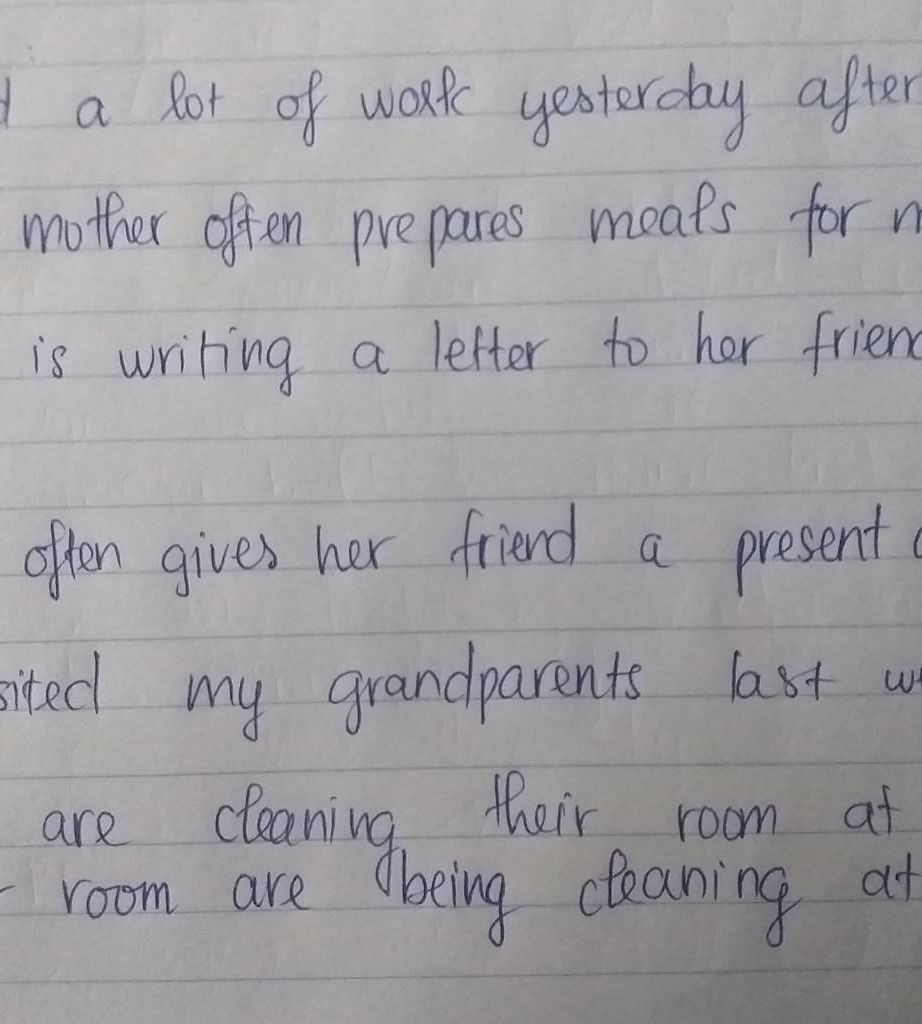 a lot of work yesterday after
mother often prepares meals for
is writing a letter to her friend
often gives her friend a present
sited my grandparents last
are cleaning their room at
room are being cleaning at